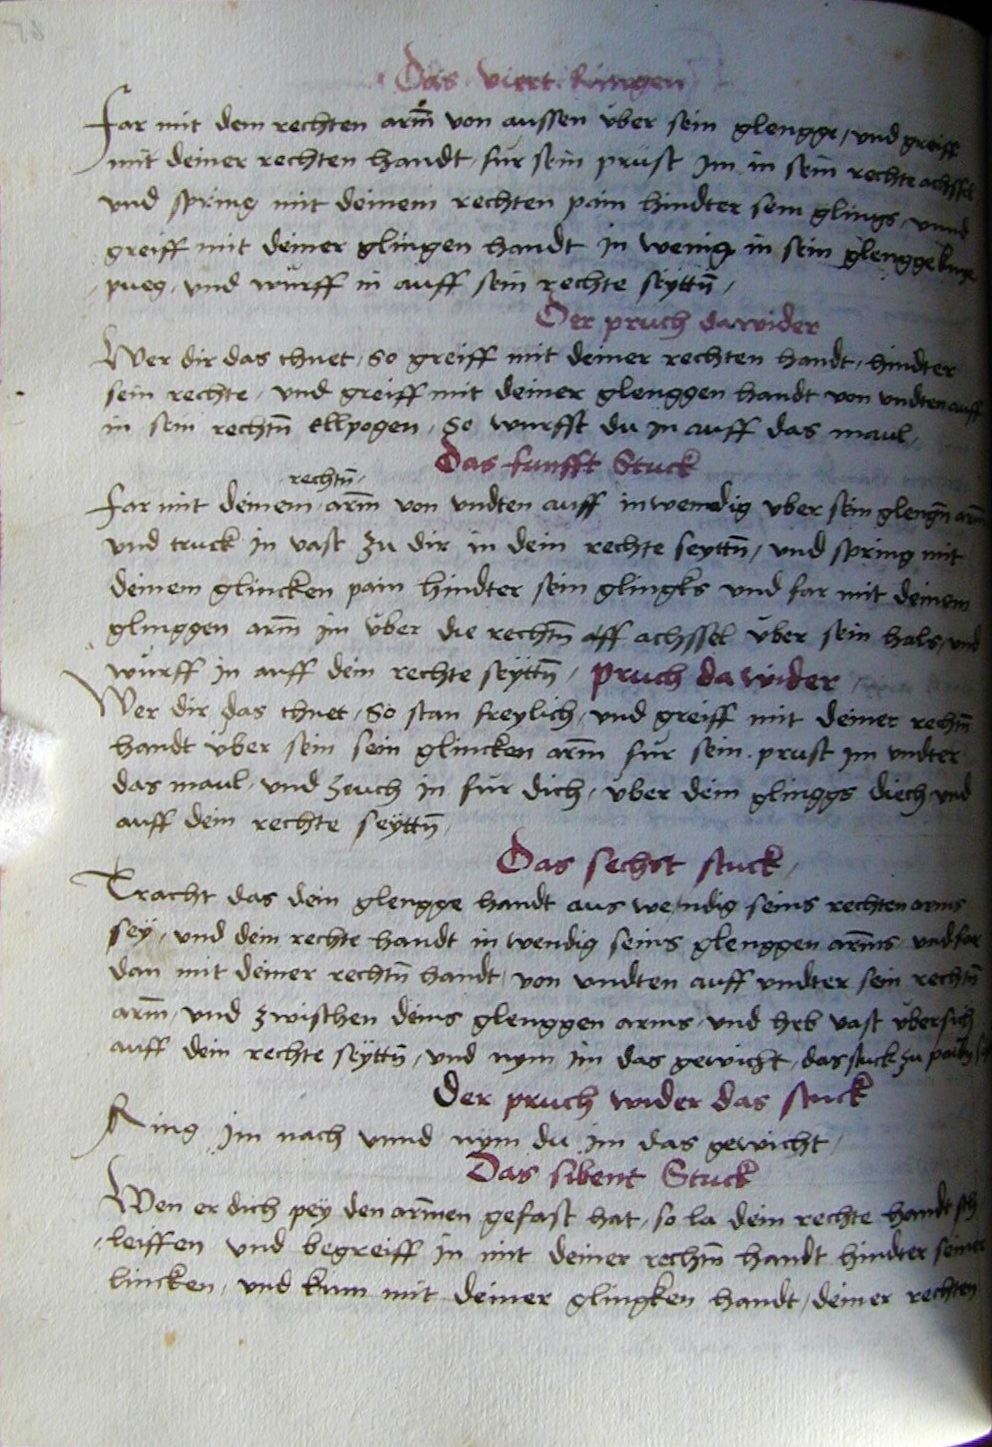 Das viert Ringen
Far mit dem rechten arm̄ von aussen über sein glengge, und greiff
mit deiner rechten handt für sein prüst im in sein rechte achssel
und spring mit deinem rechten pain hindter sein glings, unnd
greiff mit deiner glingen handt in wenig in sein glengge knye
pueg, und würff in auff sein rechte seyttn̄,
Der pruch dawider
Wer dir das thuet, so greiff mit deiner rechten handt, hindter
sein rechte, und greiff mit deiner glenggen handt von undten auff
in sein rechtn̄ ellpogen, So wurfft du in auff das maul,
Das funfft Stuck
rechtn̄,
Far mit deinem arm̄ von undten auff inwendig uber sein glengn̄ arm̄
und truck in vast zu dir in dein rechte seyttn̄, und spring mit
deinem glincken pain hindter sein glingks und far mit deinem
glinggen arm̄ im über die rechtn̄ aff achssel über sein hals, und
würff in auff dein rechte seyttn̄, pruch da wider
Wer dir das thuet, So stan freylich, und greiff mit deiner rechtn̄
handt über sein sein glincken arm̄ für sein prust im undter
das maul, und zeuch in für dich, über dein glinggs diech und
auff dein rechte seyttn̄,
Das sechst stuck,
Tracht das dein glengge handt aus wendig seins rechten arms
sey, und dein rechte handt in wendig seins glenggen arm̄s, und far
dan mit deiner rechtn̄ handt, von undten auff undter sein rechtn̄
arm̄, und zwischen deins glenggen arms, und heb vast übersich
auff dein rechte seyttn̄, und nym im das gewicht, das stuck zu
Der pruch wider das stuck
Ring im nach unnd nym du im das gewicht,
Das sibent Stuck
Wen er dich pey den arm̄en gefast hat, so la dein rechte handt sch
leiffen und begreiff in mit deiner rechtn̄ handt hindter seiner
lincken, und kum mit deiner glingken handt, deiner rechten